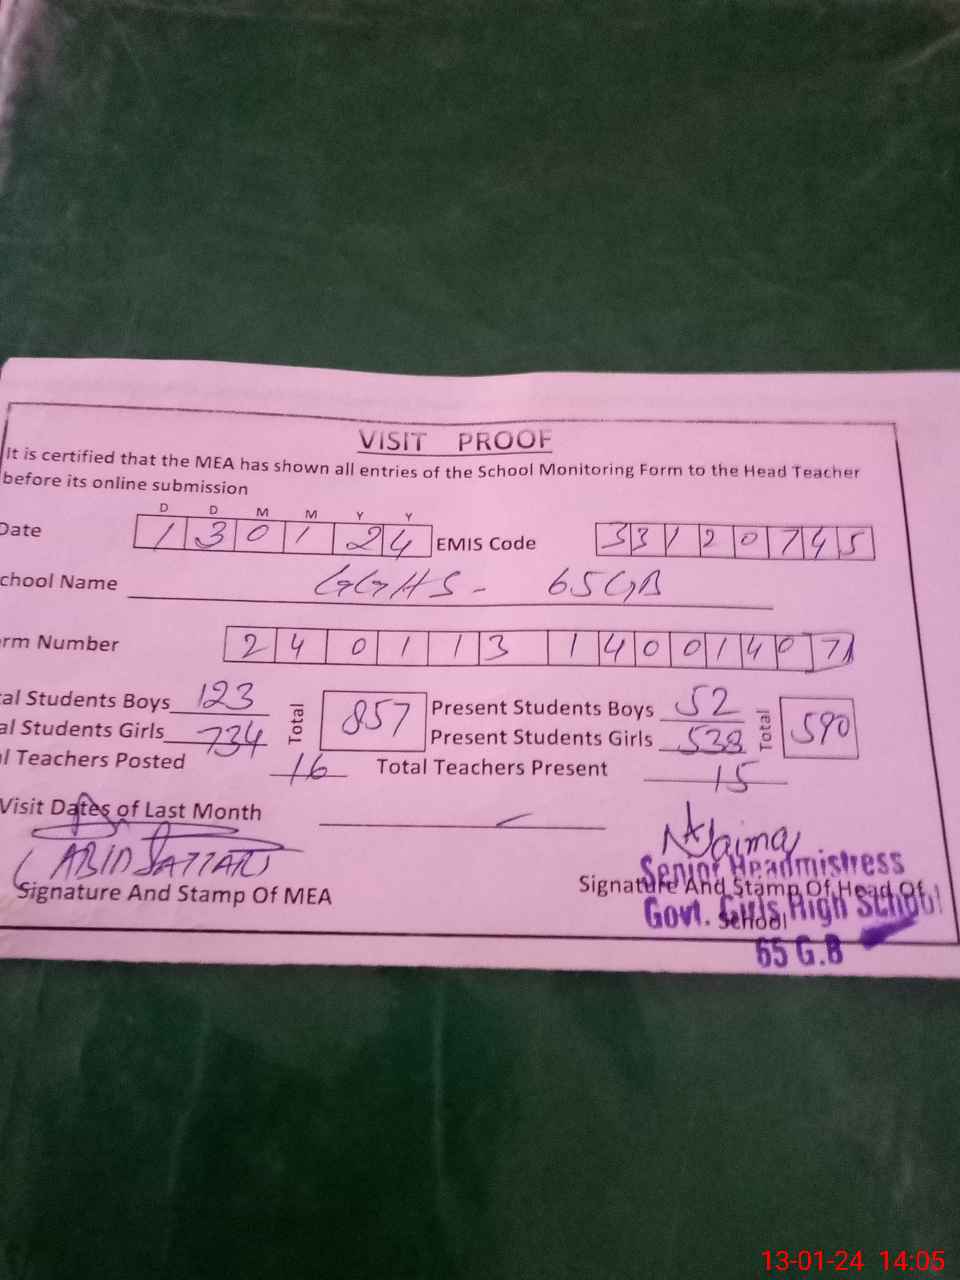 VISIT PROOF
It is certified that the MEA has shown all entries of the School Monitoring Form to the Head Teacher
before its online submission
D D M M Y Y
Date 1 3 0 1 2 4 EMIS Code 3 3 1 2 0 7 4 5
chool Name GGHS - 65GB
rm Number 2 4 0 1 1 3 1 4 0 0 1 4 0 7
al Students Boys 123 Total 857 Present Students Boys 52 Total 590
al Students Girls 734 Present Students Girls 538
l Teachers Posted 16 Total Teachers Present 15
Visit Dates of Last Month
(ABID SATTAR)
Signature And Stamp Of MEA
Signature And Stamp Of Head Of
School
Senior Headmistress
Govt. Girls High School
65 G.B
13-01-24 14:05